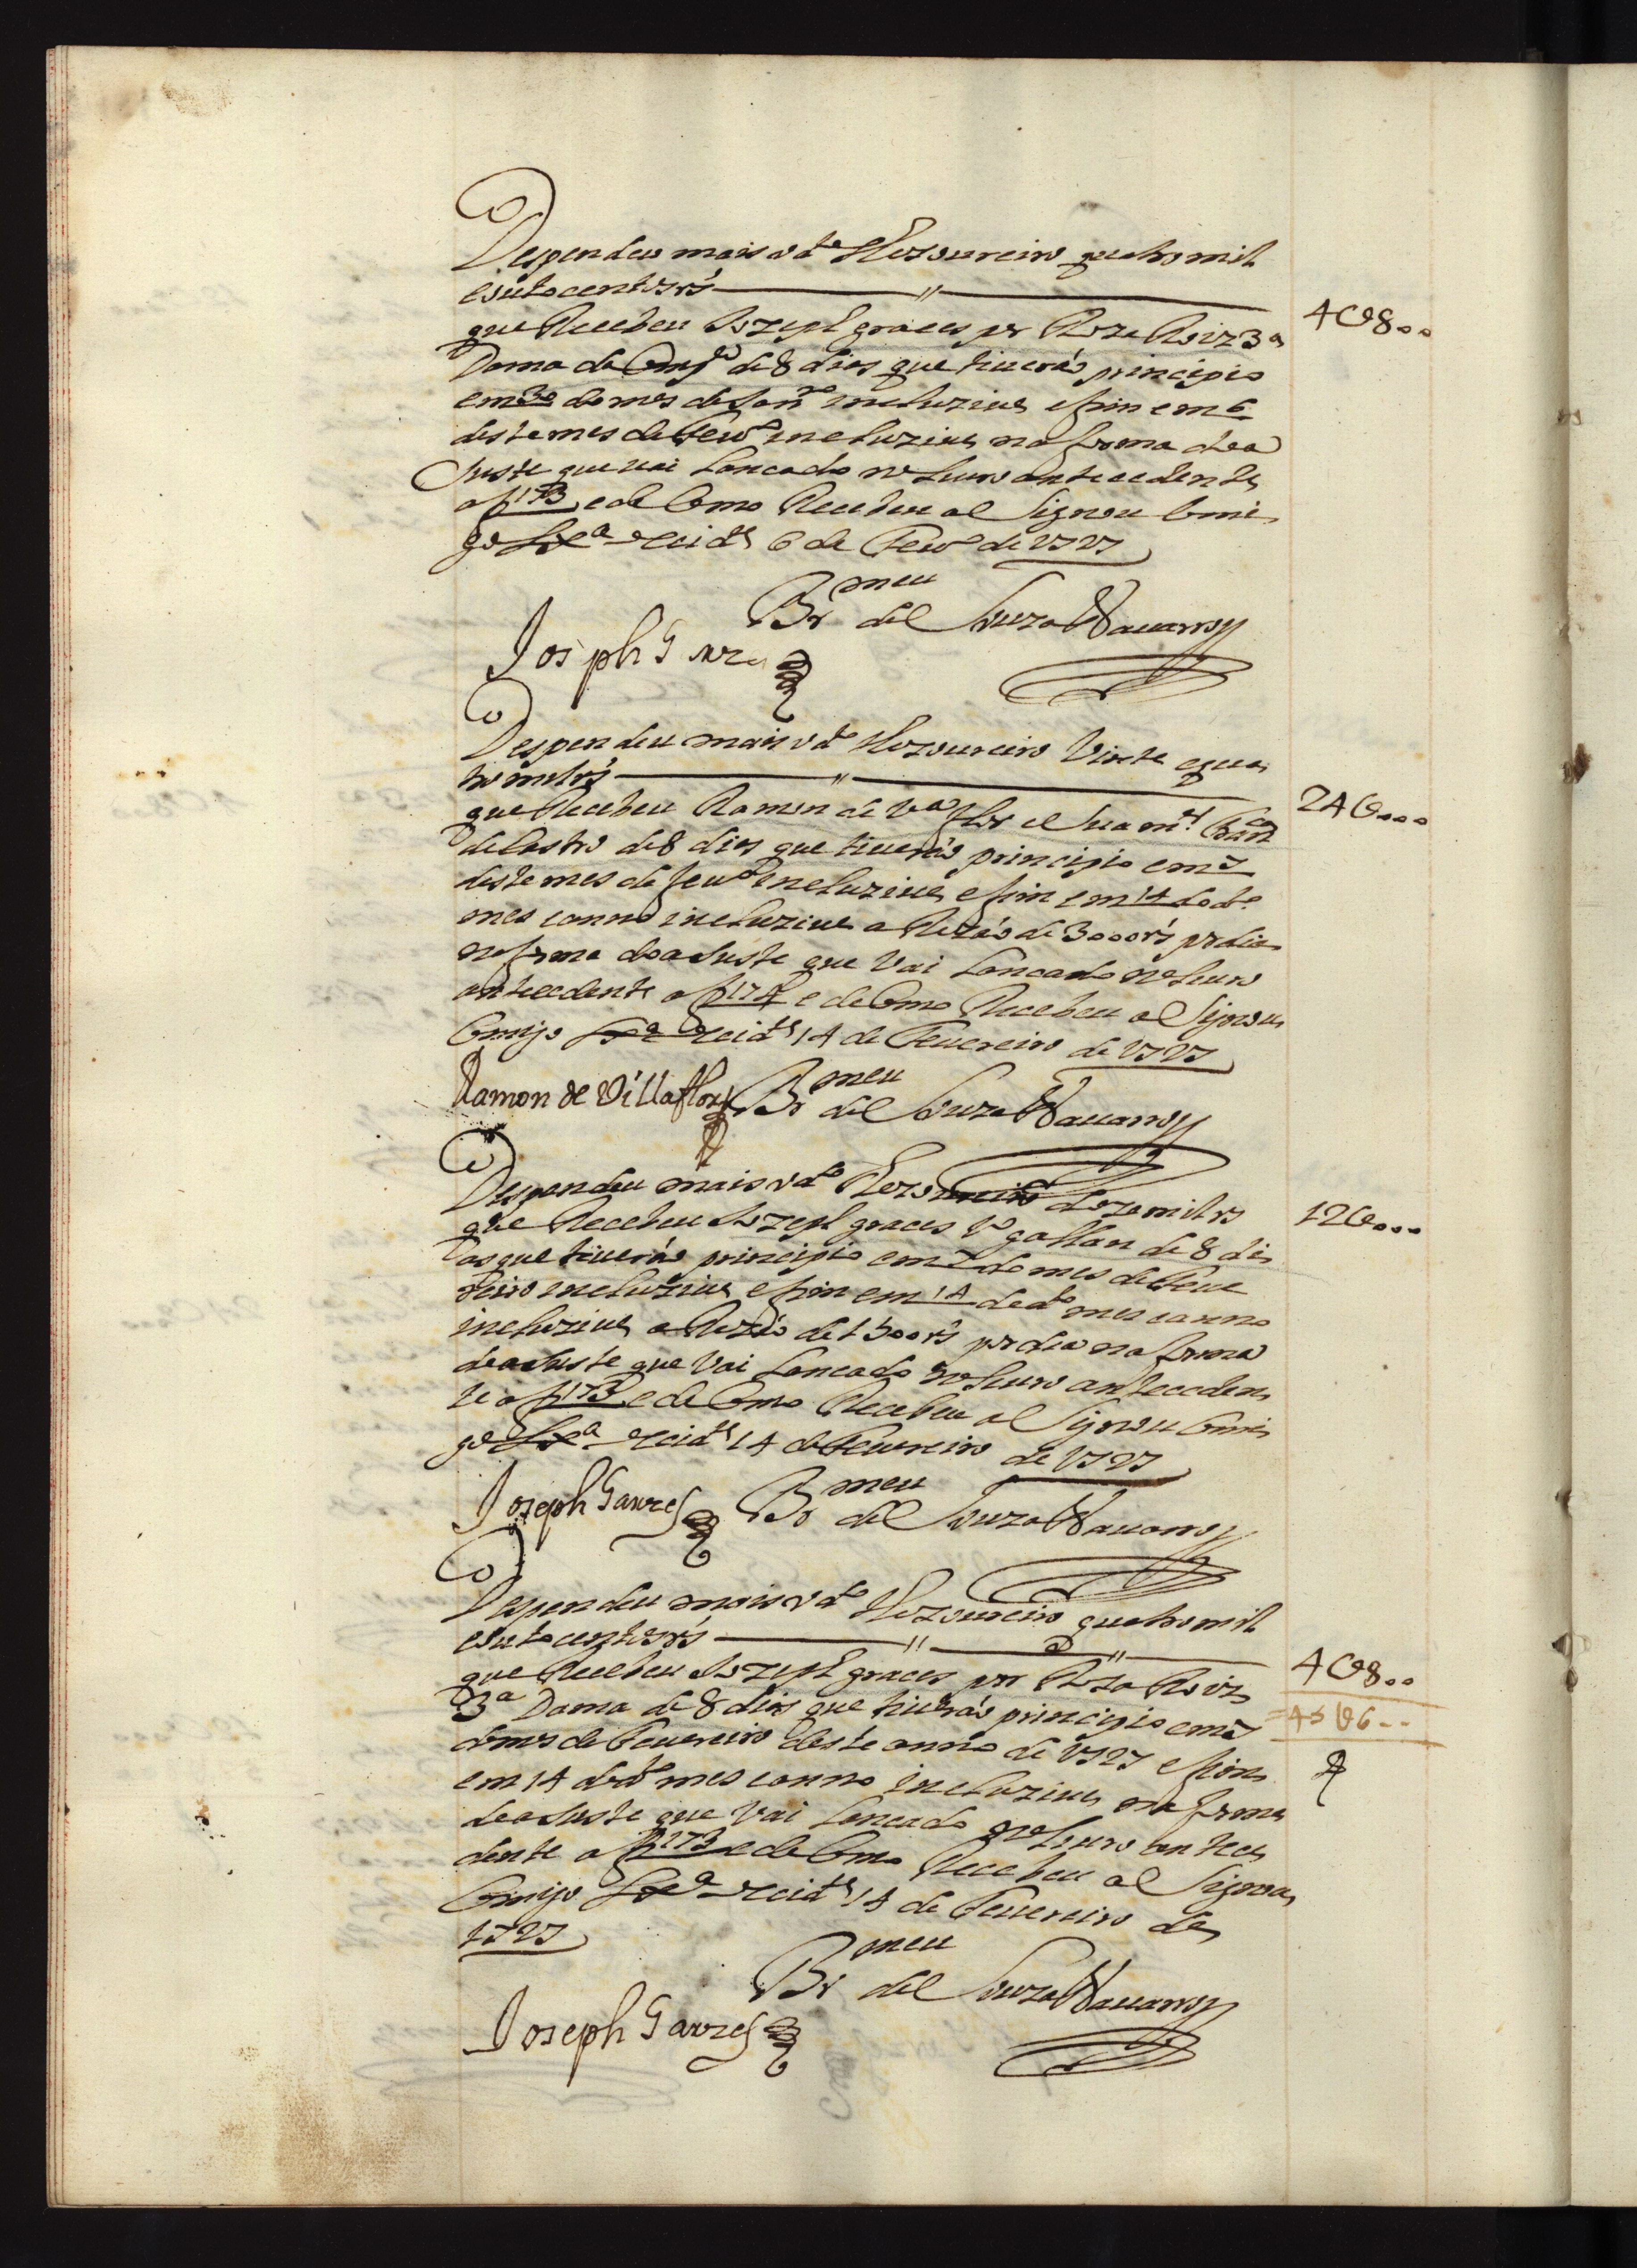 Despendeu mais o dº Thezoureiro quatro mil
e outo centos rs̃ 4U800
que Recebeu Jozeph graces por Roza Roiz 3ª
Dama da Compª de 8 dias que tiuerão principio
em 30 do mes de Janrº incluziue e fim em 6
deste mes de feurº incluziue na forma do a
Juste que uai Lancado no Liuro antecedente
a f 173 e de Como Recebeu asignou Comi
go Lxª occidªl 6 de Feurº de 1727
Brmeu de Souza Nauarro
Joseph Garzes
Despendeu mais o dº Thezoureiro Vinte e qua
tro mil rs̃ 24U000
que Recebeu Ramon de Vª flor e sua mer
de Castro de 8 dias que tiuerão principio em 7
deste mes de feurº incluziue e fim em 14 do dº
mes e anno incluziue a Rezão de 3000 rs̃ por dia
na forma do aJuste que Vai Lancado no Liuro
antecedente a f 174 e de Como Recebeu asignou
Comigo Lxª occidªl 14 de Feuereiro de 1727
Ramon de Villaflor Brmeu de Souza Nauarro
Despendeu mais o dº Thezoureiro doze mil rs 12U000
que Recebeu Jozeph graces 1º gallan de 8 di
as que tiuerão principio em 7 do mes de Feue
reiro incluziue e fim em 14 do dº mes e anno
incluziue a Rezão de 1500 rs̃ por dia na forma
do aJuste que Vai Lancado no Liuro anteceden
te a f 173 e de Como Recebeu asignou Comi
go Lxª occidªl 14 de Feuereiro de 1727
Joseph Garzes Brmeu de Souza Nauarro
Despendeu mais o dº Thezoureiro quatro mil
e outo centos rs̃ 4U800
que Recebeu Jozeph graces por Roza Roiz
3ª Dama de 8 dias que tiuerão principio em 7
do mes de Feuereiro deste anno de 1727 e fim
em 14 do dº mes e anno incluziue na forma
do aJuste que Vai Lancado no Liuro antece
dente a f 173 e de Como Recebeu asignou
Comigo Lxª occidªl 14 de Feuereiro de
1727
Brmeu de Souza Nauarro
Joseph Garzes